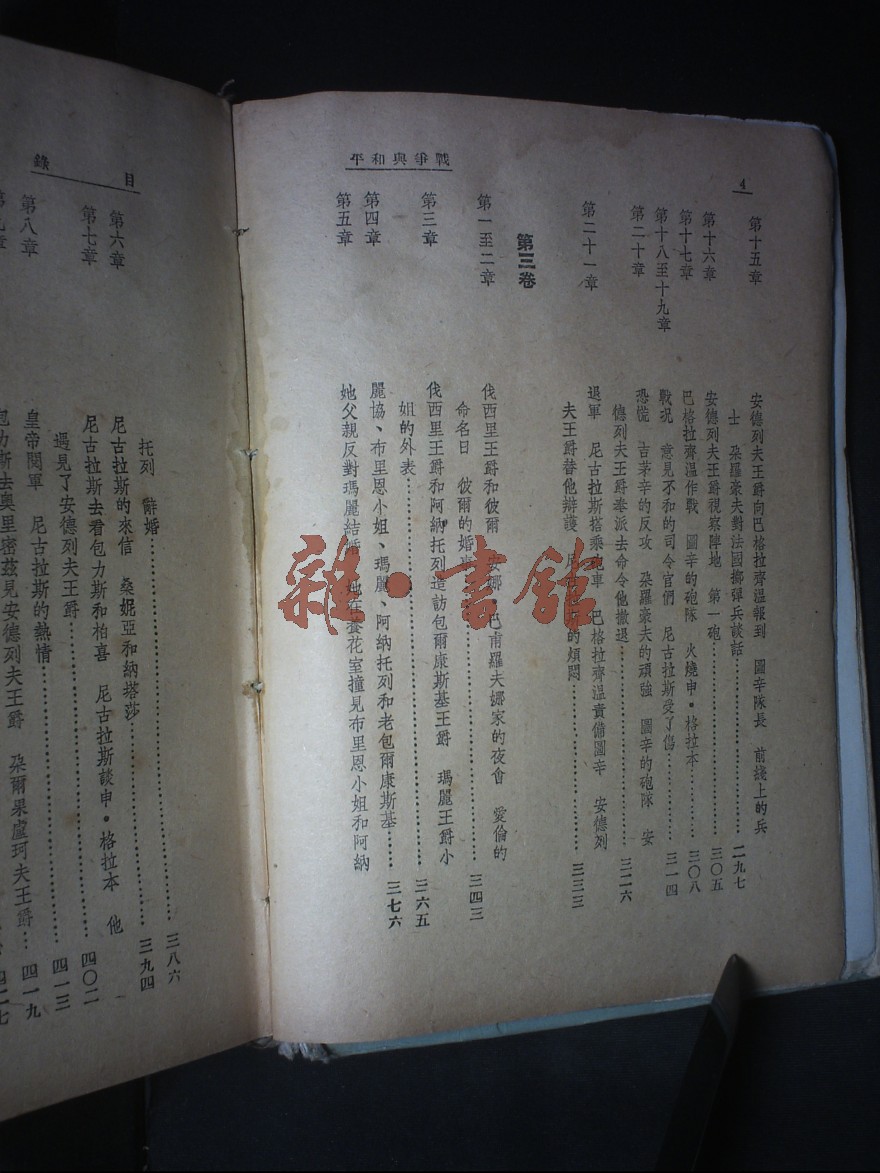 平和與爭戰
4
第十五章
安德列夫王爵向巴格拉齊溫報到 圖辛隊長 前綫上的兵
士 朶羅豪夫對法國擲彈兵談話 二九七
第十六章
安德列夫王爵視察陣地 第一砲 三〇五
第十七章
巴格拉齊溫作戰 圖辛的砲隊 火燒申·格拉本 三〇八
第十八至十九章
戰況 意見不和的司令官們 尼古拉斯受了傷 三一四
第二十章
恐慌 吉茅辛的反攻 朶羅豪夫的頑強 圖辛的砲隊 安
德列夫王爵奉派去命令他撤退 三二六
第二十一章
退軍 尼古拉斯搭乘砲車 巴格拉齊溫責備圖辛 安德列
夫王爵替他辯護 的煩悶 三三三
第三卷
第一至二章
伐西里王爵和彼爾 安娜 巴甫羅夫娜家的夜會 愛倫的
命名日 彼爾的婚 三四三
第三章
伐西里王爵和阿納托列造訪包爾康斯基王爵 瑪麗王爵小
姐的外表 三六五
第四章
麗協、布里恩小姐、瑪麗、阿納托列和老包爾康斯基 三七六
第五章
她父親反對瑪麗結婚 她在養花室撞見布里恩小姐和阿納
目錄
托列 辭婚 三八六
第六章
尼古拉斯的來信 桑妮亞和納塔莎 三九四
第七章
尼古拉斯去看包力斯和柏喜 尼古拉斯談申·格拉本 他
遇見了安德列夫王爵 四〇二
第八章
皇帝閱軍 尼古拉斯的熱情 四一三
第九章
包力斯去奧里密茲見安德列夫王爵 朶爾果盧珂夫王爵 四一九
四二七
雜·書館